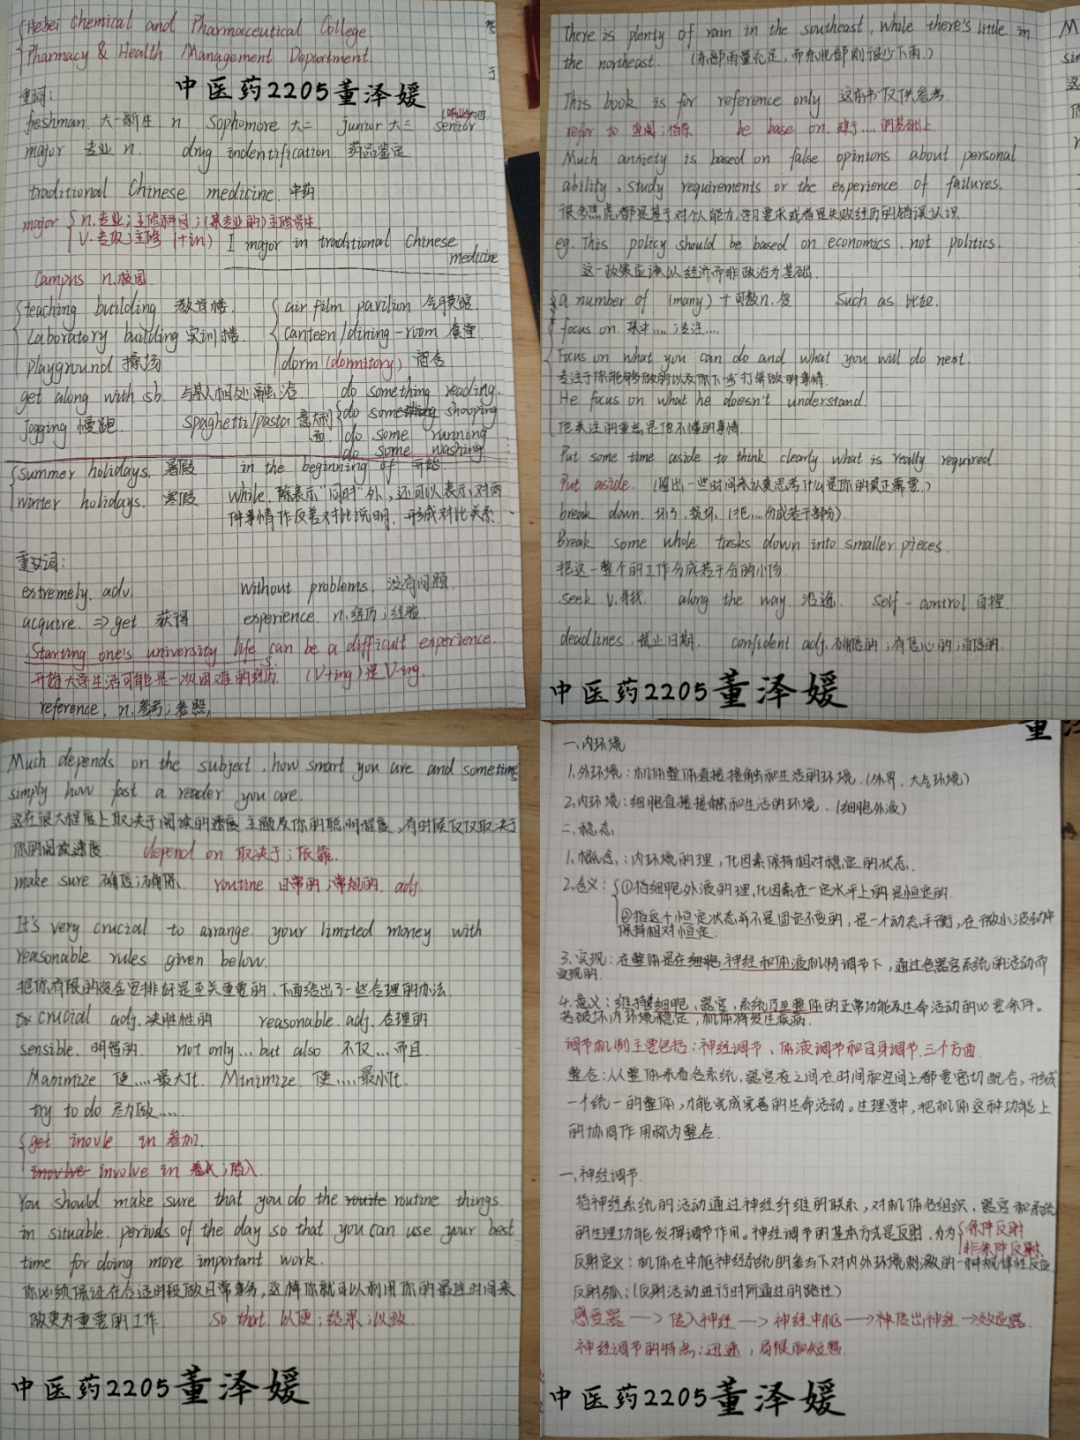 Hebei Chemical and Pharmaceutical College
Pharmacy & Health Management Department
中医药2205董泽媛
重词:
freshman. 大一新生 n sophomore 大二 junior 大三 senior
major 专业 n. drug indentification 药品鉴定
traditional Chinese medicine. 中药
major { n. 专业; 主修科目; (某专业的)主修学生
v. 专攻; 主修 (+in) I major in traditional Chinese medicine
Campus n. 校园
teaching building 教学楼 air film pavilion 气膜馆
Laboratory building 实训楼 canteen/dining-room 食堂
playground 操场 dorm (dormitory) 宿舍
get along with sb. 与某人相处融洽 do something reading
Jogging 慢跑 spaghetti/pasta 意大利面 do some shopping
do some running
do some washing
summer holidays. 暑假 in the beginning of 开始
winter holidays. 寒假 while. 除表示"同时"外, 还可以表示, 对两
件事情作反差对比说明. 形成对比关系.
重要词:
extremely. adv. without problems. 没有问题
acquire. ⇒ get 获得 experience. n. 经历; 经验
Starting one's university life can be a difficult experience.
开始大学生活可能是一次困难的经历. (V+ing) 是 V-ing.
reference. n. 参考; 参照,
There is plenty of rain in the southeast, while there's little in
the northeast. (东部雨量充足, 而东北部则很少下雨.)
This book is for reference only 这本书仅供参考
refer to 查阅; 指导 be base on. 建于....的基础上
Much anxiety is based on false opinions about personal
ability, study requirements or the experience of failures.
很多焦虑都是基于对个人能力, 学习要求或者是失败经历的错误认识.
eg. This policy should be based on economics. not politics.
这一政策应该以经济而非政治为基础.
a number of (many) + 可数n. 复 Such as 比如.
focus on. 集中....; 关注....
Focus on what you can do and what you will do next.
专注于你能够做的以及你下一步打算做的事情.
He focus on what he doesn't understand.
他关注的重点是他不懂的事情.
Put some time aside to think clearly what is really required
Put aside. (留出一些时间来认真思考什么是你的真正需要.)
break down. 坏了, 损坏. (把....分成若干部分)
Break some whole tasks down into smaller pieces.
把这一整个的工作分成若干分的小份
seek v. 寻找. along the way 沿途. self-control 自控.
deadlines. 截止日期. confident adj. 确信的; 有信心的; 自信的.
中医药2205董泽媛
Much depends on the subject, how smart you are and sometimes
simply how fast a reader you are.
这在很大程度上取决于阅读的速度 主题及你的聪明程度, 有时候仅仅取决于
你的阅读速度. depend on 取决于; 依靠.
make sure 确信; 确保. routine 日常的; 常规的. adj.
It's very crucial to arrange your limited money with
reasonable rules given below.
把你有限的资金安排好是至关重要的, 下面给出了一些合理的办法.
crucial adj. 决定性的 reasonable. adj. 合理的
sensible. 明智的 not only... but also 不仅... 而且
Maximize 使....最大化. Minimize 使....最小化.
try to do 尽力做....
get inovle in 参加.
involve in 卷入; 陷入
You should make sure that you do the routine things
in situable. periods of the day so that you can use your best
time for doing more important work.
你必须保证在合适时段做日常事务, 这样你就可以利用你的最佳时间来
做更为重要的工作 so that. 以便; 结果; 以致.
中医药2205董泽媛
一. 内环境
1. 外环境: 机体整体直接接触和生活的环境. (外界, 大气环境)
2. 内环境: 细胞直接接触和生活的环境. (细胞外液)
二. 稳态
1. 概念: 内环境的理, 化因素保持相对稳定的状态.
2. 含义: ①指细胞外液的理, 化因素在一定水平上的是恒定的
②指这个恒定状态并不是固定不变的, 是一个动态平衡, 在微小波动中
保持相对恒定.
3. 实现: 在整体是在神经和体液机制调节下, 通过各器官系统的活动而
实现的.
4. 意义: 维持细胞, 器官, 系统乃至整体的正常功能及生命活动的必要条件.
若破坏内环境稳定, 机体将发生疾病.
调节机制主要包括: 神经调节、体液调节和自身调节. 三个方面.
整合: 从整体来看各系统, 器官在之间在时间和空间上都要密切配合, 形成
一个统一的整体, 才能完成完善的生命活动. 生理学中, 把机体这种功能上
的协同作用称为整合.
一. 神经调节.
指神经系统的活动通过神经纤维的联系, 对机体各组织, 器官和系统
的生理功能发挥调节作用. 神经调节的基本方式是反射, 分为 { 条件反射
非条件反射
反射定义: 机体在中枢神经系统的参与下对内外环境刺激的一种规律性反应
反射弧: (反射活动进行时所通过的路径)
感受器 → 传入神经 → 神经中枢 → 传出神经 → 效应器.
神经调节的特点: 迅速, 局限和短暂.
中医药2205董泽媛